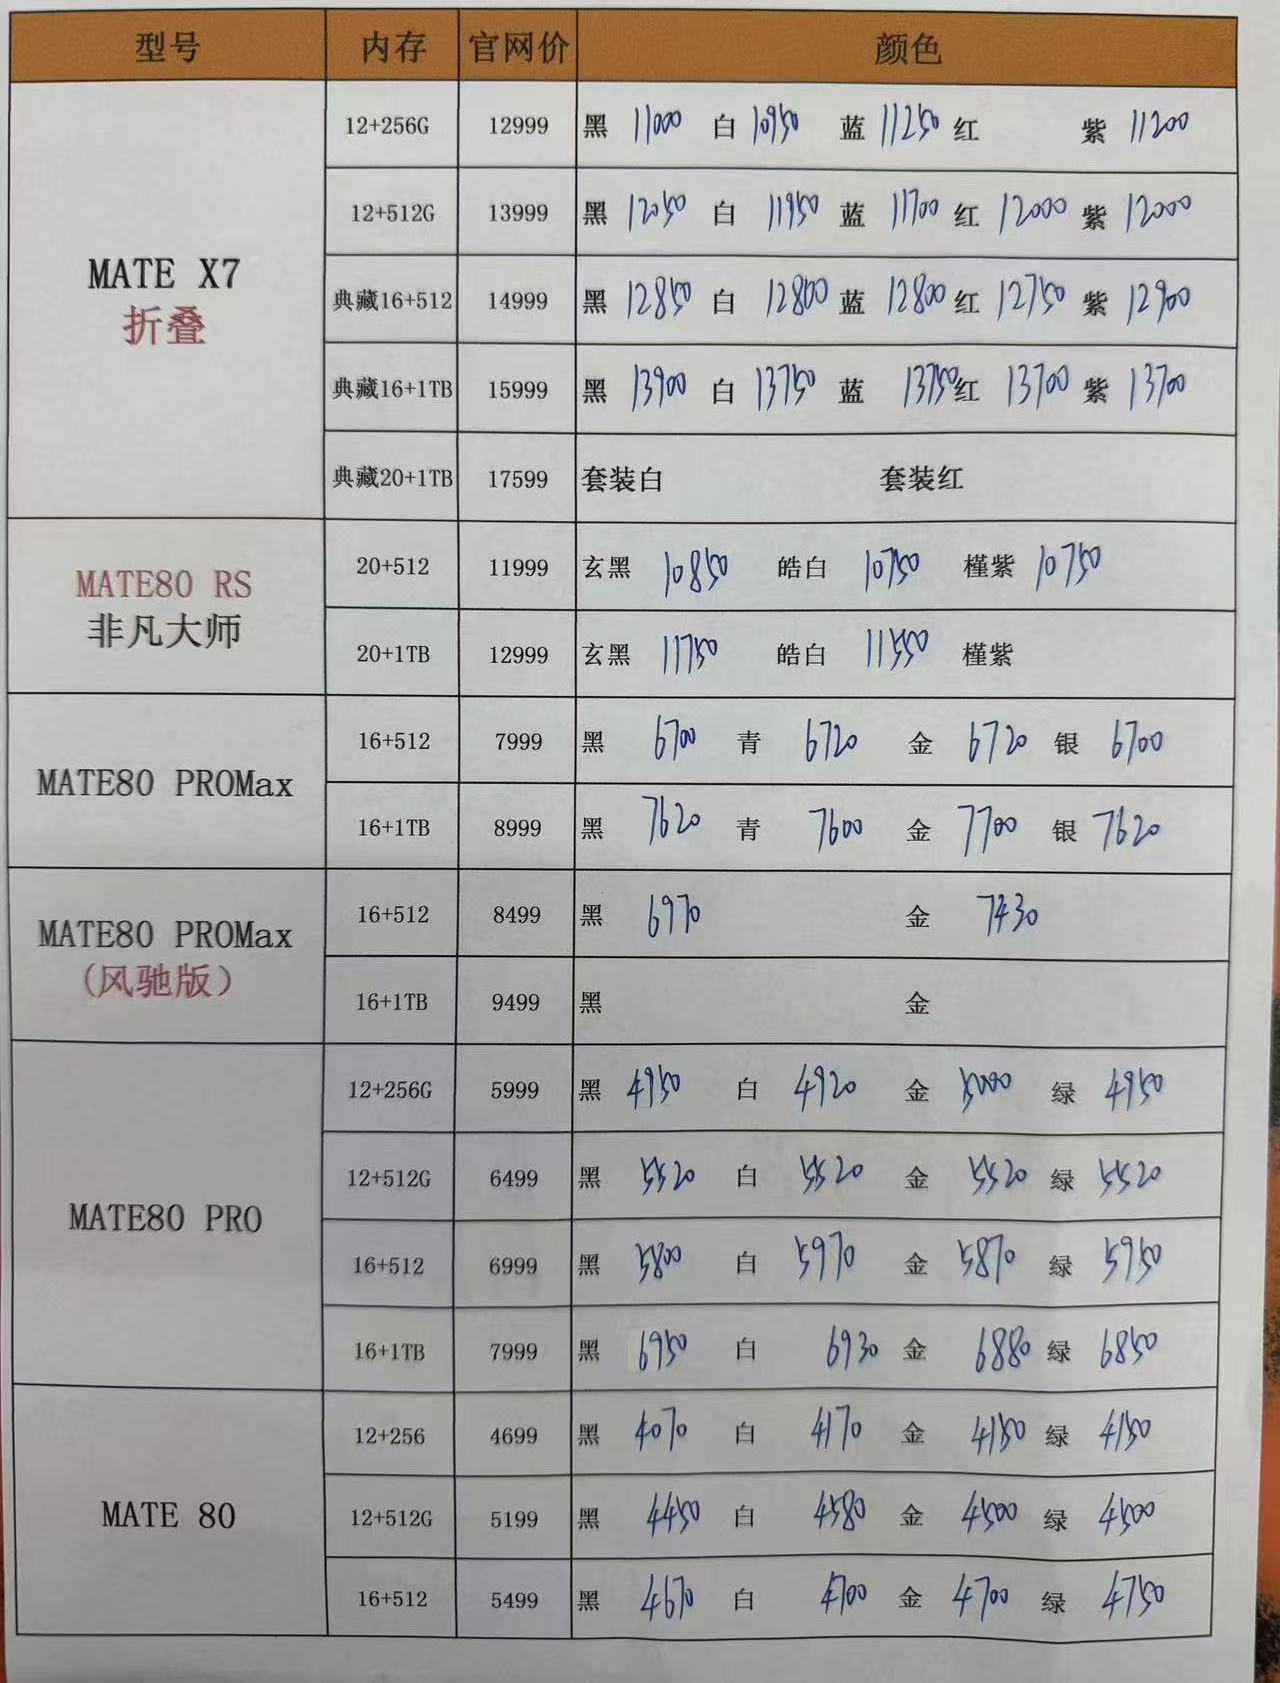 型号 内存 官网价 颜色
12+256G 12999 黑 11000 白 10950 蓝 11250 红 紫 11200
12+512G 13999 黑 12050 白 11950 蓝 11700 红 12000 紫 12000
MATE X7
折叠
典藏16+512 14999 黑 12850 白 12800 蓝 12800 红 12750 紫 12900
典藏16+1TB 15999 黑 13900 白 13750 蓝 13750 红 13700 紫 13700
典藏20+1TB 17599 套装白 套装红
MATE80 RS
非凡大师
20+512 11999 玄黑 10850 皓白 10750 槿紫 10750
20+1TB 12999 玄黑 11750 皓白 11550 槿紫
MATE80 PROMax
16+512 7999 黑 6700 青 6720 金 6720 银 6700
16+1TB 8999 黑 7620 青 7600 金 7700 银 7620
MATE80 PROMax
（风驰版）
16+512 8499 黑 6970 金 7430
16+1TB 9499 黑 金
MATE80 PRO
12+256G 5999 黑 4950 白 4920 金 5000 绿 4950
12+512G 6499 黑 5520 白 5520 金 5520 绿 5520
16+512 6999 黑 5800 白 5970 金 5870 绿 5950
16+1TB 7999 黑 6950 白 6930 金 6880 绿 6850
MATE 80
12+256 4699 黑 4070 白 4170 金 4150 绿 4150
12+512G 5199 黑 4450 白 4580 金 4500 绿 4500
16+512 5499 黑 4670 白 4700 金 4700 绿 4750